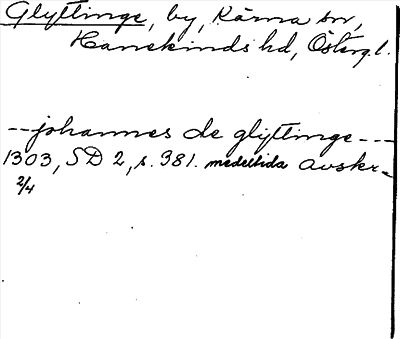 Glyttinge, by, Kärna sn,
Hanekinds hd, Östergl.
--johannes de glyttinge---
1303, SD 2, s. 381. medeltida avskr.
2/4